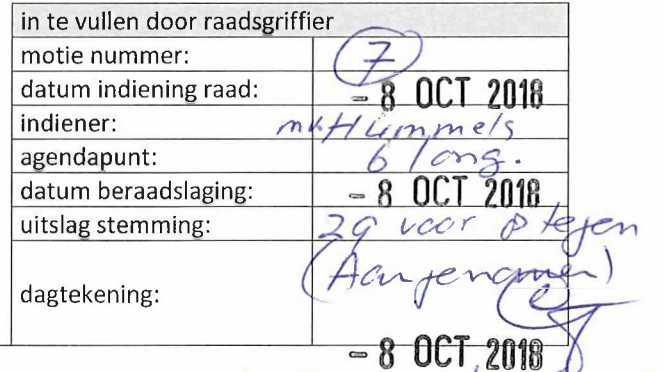 in te vullen door raadsgriffier
motie nummer: 7
datum indiening raad: - 8 OCT 2018
indiener: mv. Hummels
agendapunt: 6 / ong.
datum beraadslaging: - 8 OCT 2018
uitslag stemming: 29 voor 8 tegen
(Aangenomen)
dagtekening:
- 8 OCT 2018